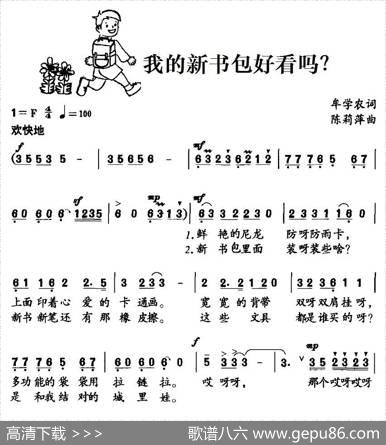 我的新书包好看吗?
1=F 4/4 ♩=100
牟学农词
欢快地
陈莉萍曲
f
mf
(3 5 5 3 5 - | 3 5 6 5 6 - | 6 3 2 3 6 2 1 2 | 7 7 7 6 5 6 7 |
sf mp mf
6 0 6 0 6 1 2 3 5 | 6 0 6 3 1 3) | 6 3 3 2 2 3 0 | 2 3 3 1 1 6 0 |
1.鲜艳的尼龙 防呀防雨卡,
2.新书包里面 装呀装些啥?
6 1 1 6 2 2. 5 | 3 2 3 3 - | 2 2. 2 1 2 0 | 3 2 3 6 1 1 - |
上面印着心爱的卡通画。 宽宽的背带 双呀双肩挂呀,
新书新笔还有那橡皮擦。 这些文具 都是谁买的呀?
mp f mp
7 7 7 6 5 6 7 | 6 0 6 0 6 0 6 | 5 3 3 3 - | 3. 3 5 2 3 2 3 |
多功能的袋袋用拉链拉。 哎呀呀, 那个哎呀哎呀
是和我结对的城里娃。
高清下载 >>>
歌谱八六 www.gepu86.com